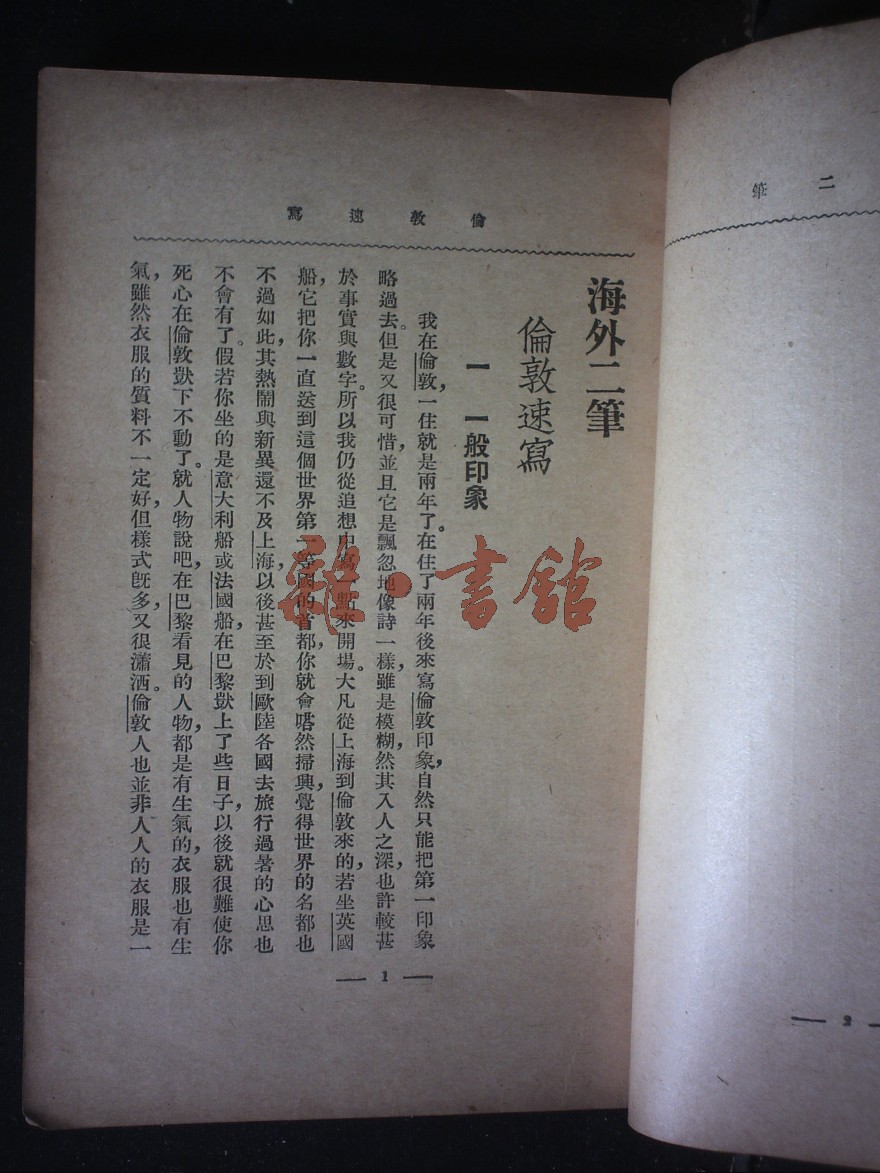 倫敦速寫
海外二筆
倫敦速寫
一 一般印象
我在倫敦,一住就是兩年了。在住了兩年後來寫倫敦印象,自然只能把第一印象
略過去。但是又很可惜,並且它是飄忽地像詩一樣,雖是模糊,然其入人之深,也許較甚
於事實與數字。所以我仍從追想中寫一點來開場。大凡從上海到倫敦來的,若坐英國
船,它把你一直送到這個世界第一等國的首都,你就會嗒然掃興,覺得世界的名都也
不過如此,其熱鬧與新異還不及上海,以後甚至於到歐陸各國去旅行過暑的心思也
不會有了。假若你坐的是意大利船或法國船,在巴黎獃上了些日子,以後就很難使你
死心在倫敦獃下不動了。就人物說吧,在巴黎看見的人物,都是有生氣的,衣服也有生
氣,雖然衣服的質料不一定好,但樣式旣多,又很瀟洒。倫敦人也並非人人的衣服是一
— 1 —
二筆
— 2
雜·書館